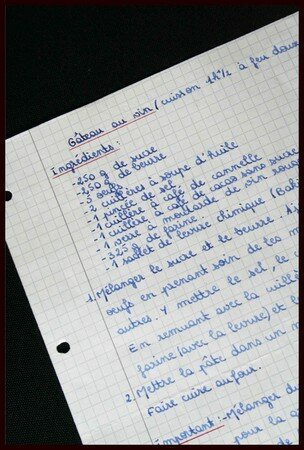 Gâteau au vin (cuisson 1h½ à feu doux
Ingrédients:
-250 g de sucre
-250 g de beurre
-5 oeufs
-2 cuillères à soupe d'huile
-1 pincée de sel
-1 cuillère à café de cannelle
-1 cuillère à café de cacao sans sucre
-1 verre à moutarde de vin rou
-325 g de farine
-1 sachet de levure chimique (Bak
1. Mélanger le sucre et le beurre. A
oeufs en prenant soin de les m
autres. Y mettre le sel, le c
En remuant avec la cuill
farine (avec la levure) et l
2. Mettre la pâte dans un m
Faire cuire au four.
Important: -Mélanger d
pour la q